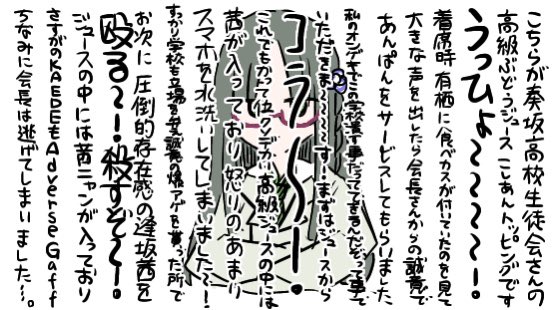 こちらが奏坂高校生徒会さんの
高級ぶどうジュースこしあんトッピングです
うっひょ〜〜〜〜〜！
着席時 有栖に食べカスが付いていたのを見て
大きな声を出したら会長さんからの誠意で
あんぱんをサービスしてもらいました
コラ〜〜！
いただきま〜〜〜〜す！まずはジュースから
これでもかって位クソデカい高級ジュースの中には
茜が入っており怒りのあまり
スマホを水洗いしてしまいました〜！
すっかり学校も立場を弁え誠意の爆アゲを貰った所で
お次に圧倒的存在感の逢坂茜を
殴る〜！殺すぞ〜！
ジュースの中には茜ニャンが入っており
さすがのKAEDEもAdverse Gaff
ちなみに会長は逃げてしまいました〜。